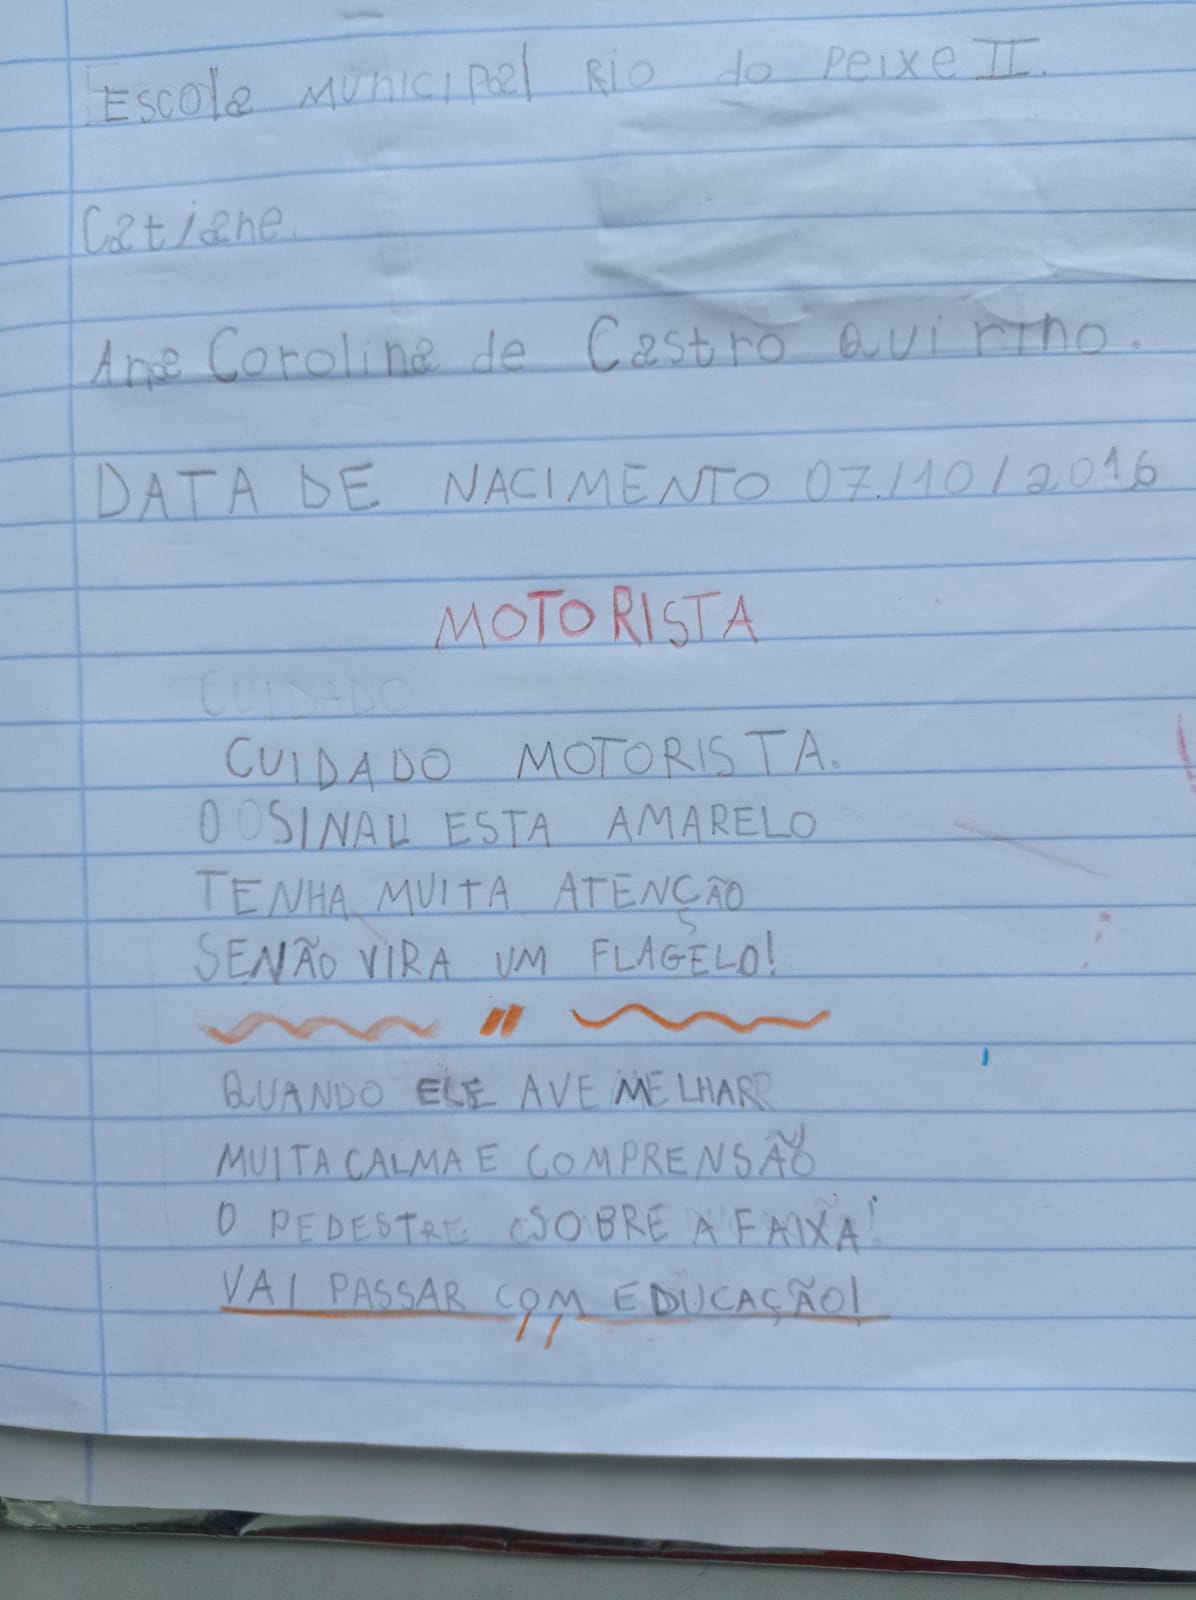 Escola MUNICIPal RIO do Peixe II.
Catiane.
Ana Carolina de Castro Quirino.
DATA DE NACIMENTO 07/10/2016
MOTORISTA
CUIDADO
CUIDADO MOTORISTA.
O SINAL ESTA AMARELO
TENHA MUITA ATENÇÃO
SENÃO VIRA UM FLAGELO!
QUANDO ELE AVEMELHAR
MUITA CALMA E COMPRENSÃO
O PEDESTRE SOBRE A FAIXA!
VAI PASSAR COM EDUCAÇÃO!